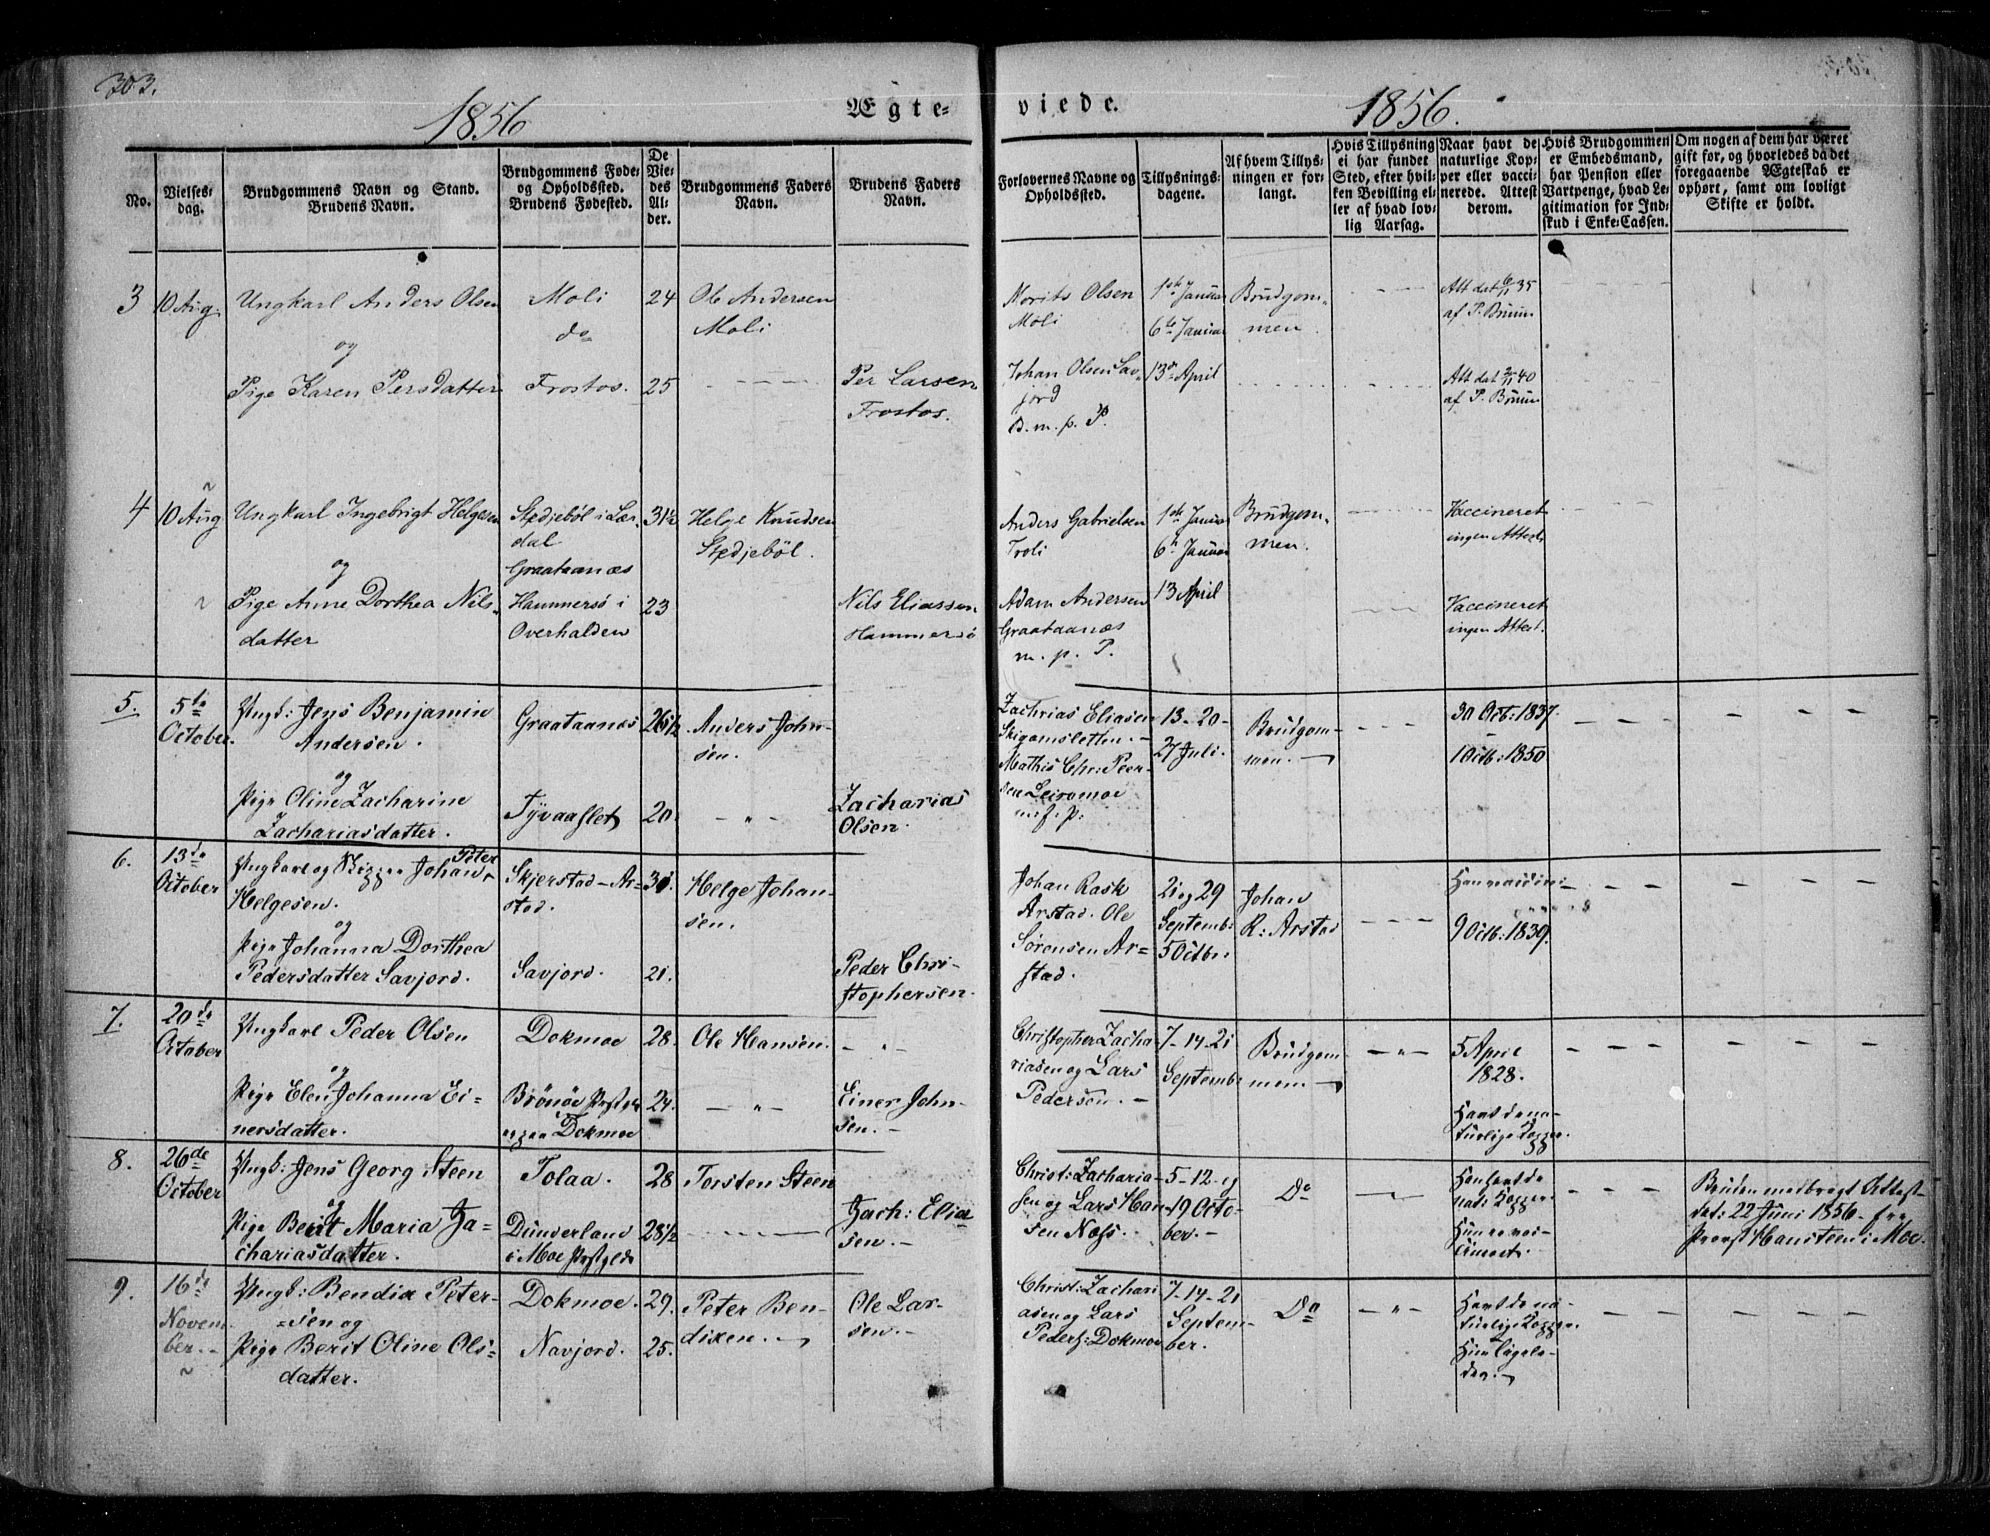 303.
1856
Ægte-
viede.
1856.
No.
Vielses-
dag.
Brudgommens Navn og Stand.
Brudens Navn.
Brudgommens Føde-
og Opholdssted.
Brudens Fødested.
De
Vie-
des
Al-
der.
Brudgommens Faders
Navn.
Brudens Faders
Navn.
Forlovernes Navne og
Opholdssted.
Tillysnings-
dagene.
Af hvem Tillys-
ningen er for-
langt.
Hvis Tillysning
ei har fundet
Sted, efter hvil-
ken Bevilling el-
ler af hvad lov-
lig Aarsag.
Naar havt de
naturlige Kop-
per eller vacci-
nerede. Attest
derom.
Hvis Brudgommen
er Embedsmand,
har Pension eller
Vartpenge, hvad Le-
gitimation for Ind-
skud i Enke-Cassen.
Om nogen af dem har været
gift før, og hvorledes da det
foregaaende Ægteskab er
ophørt, samt om lovligt
Skifte er holdt.
3
10 Aug.
Ungkarl Anders Olsen
og
Pige Karen Persdatter
Moli
do
Frostos.
24
25
Ole Andersen
Moli
Per Larsen
Frostos.
Morits Olsen
Moli
Johan Olsen Sav-
jord
B. m. p. P.
1ste Januar
6te Januar
13de April
Brudgom-
men.
Att dat 6/11 35
af P. Bruun
Att dat 2/11 40
af P. Bruun
4
10 Aug
Ungkarl Ingebrigt Helgesen
og
Pige Anne Dorthea Nils-
datter
Stedjeböl i Lær-
dal
Graataanæs
Hammersö i
Overhalden
31½
23
Helge Knudsen
Stedjeböl.
Nils Eliassen
Hammersö
Anders Gabrielsen
Troli
Adam Andersen
Graataanæs
m. p. P.
1ste Januar
6te Januar
13 April
Brudgom-
men.
Vaccineret
ingen Attest.
Vaccineret
ingen Attest.
5.
5te
October.
Ungk: Jens Benjamin
Andersen.
og
Pige Oline Zacharine
Zachariasdatter.
Graataanæs
Tyvaaflet
26½
20.
Anders John-
sen.
Zacharias
Olsen.
Zachrias Eliasen
Skigamsletten.
Mathis Chr: Peer-
sen Leiromoe
m. f. p:
13 - 20 -
27 Juli.
Brudgom-
men.
30 Oct: 1837.
1 Octb: 1850
6.
13de
October
Ungkarl og Johan Peter
Helgesen.
og
Pige Johanna Dorthea
Pedersdatter Savjord.
Skjerstad - Ar-
stad.
Savjord.
30.
21.
Helge Johan-
sen.
Peder Chri-
stophersen.
Johan Rask
Arstad. Ole
Sørensen Ar-
stad.
21 og 29
Septemb:
5 Octbr.
Johan
R: Arstad
9 Octb: 1839.
7.
20de
October
Ungkarl Peder Olsen
og
Pige Elen Johanna Ei-
nersdatter.
Dokmoe
Brönöe Præstgld
Dokmoe
28.
24.
Ole Hansen.
Einer John-
sen.
Christopher Zacha-
riasen og Lars
Pedersen.
7 - 14 - 21
Septembr
Brudgom-
men.
5 April
1828.
Havt de na-
turlige Kopper.
8.
26de
October
Ungk: Jens Georg Steen
og
Pige Berit Maria Za-
chariasdatter.
Tolaa.
Dunderland
i Moe Præstgld
28
28½
Torsten Steen
Zach: Elia-
sen.
Christ: Zacharia-
sen og Lars Han-
sen Næss.
5 - 12 - og
19 Octo-
ber.
Do
Han havt de
nat: Kopper.
Hun vac-
cineret.
Bruden medbragt Attest
dat: 22 Juni 1856 fra
Provst Hansteen i Moe.
9.
16de
Novem-
ber.
Ungk: Bendix Peter-
sen og
Pige Berit Oline Ols-
datter.
Dokmoe.
Navjord.
29.
25.
Peter Ben-
dixen.
Ole Lar-
sen.
Christ: Zachari-
asen og Lars
Peders: Dokmoe
7 - 14 - 21
Septem-
ber.
Do
Havt de na-
turlige Kopper.
Hun ligele-
des.